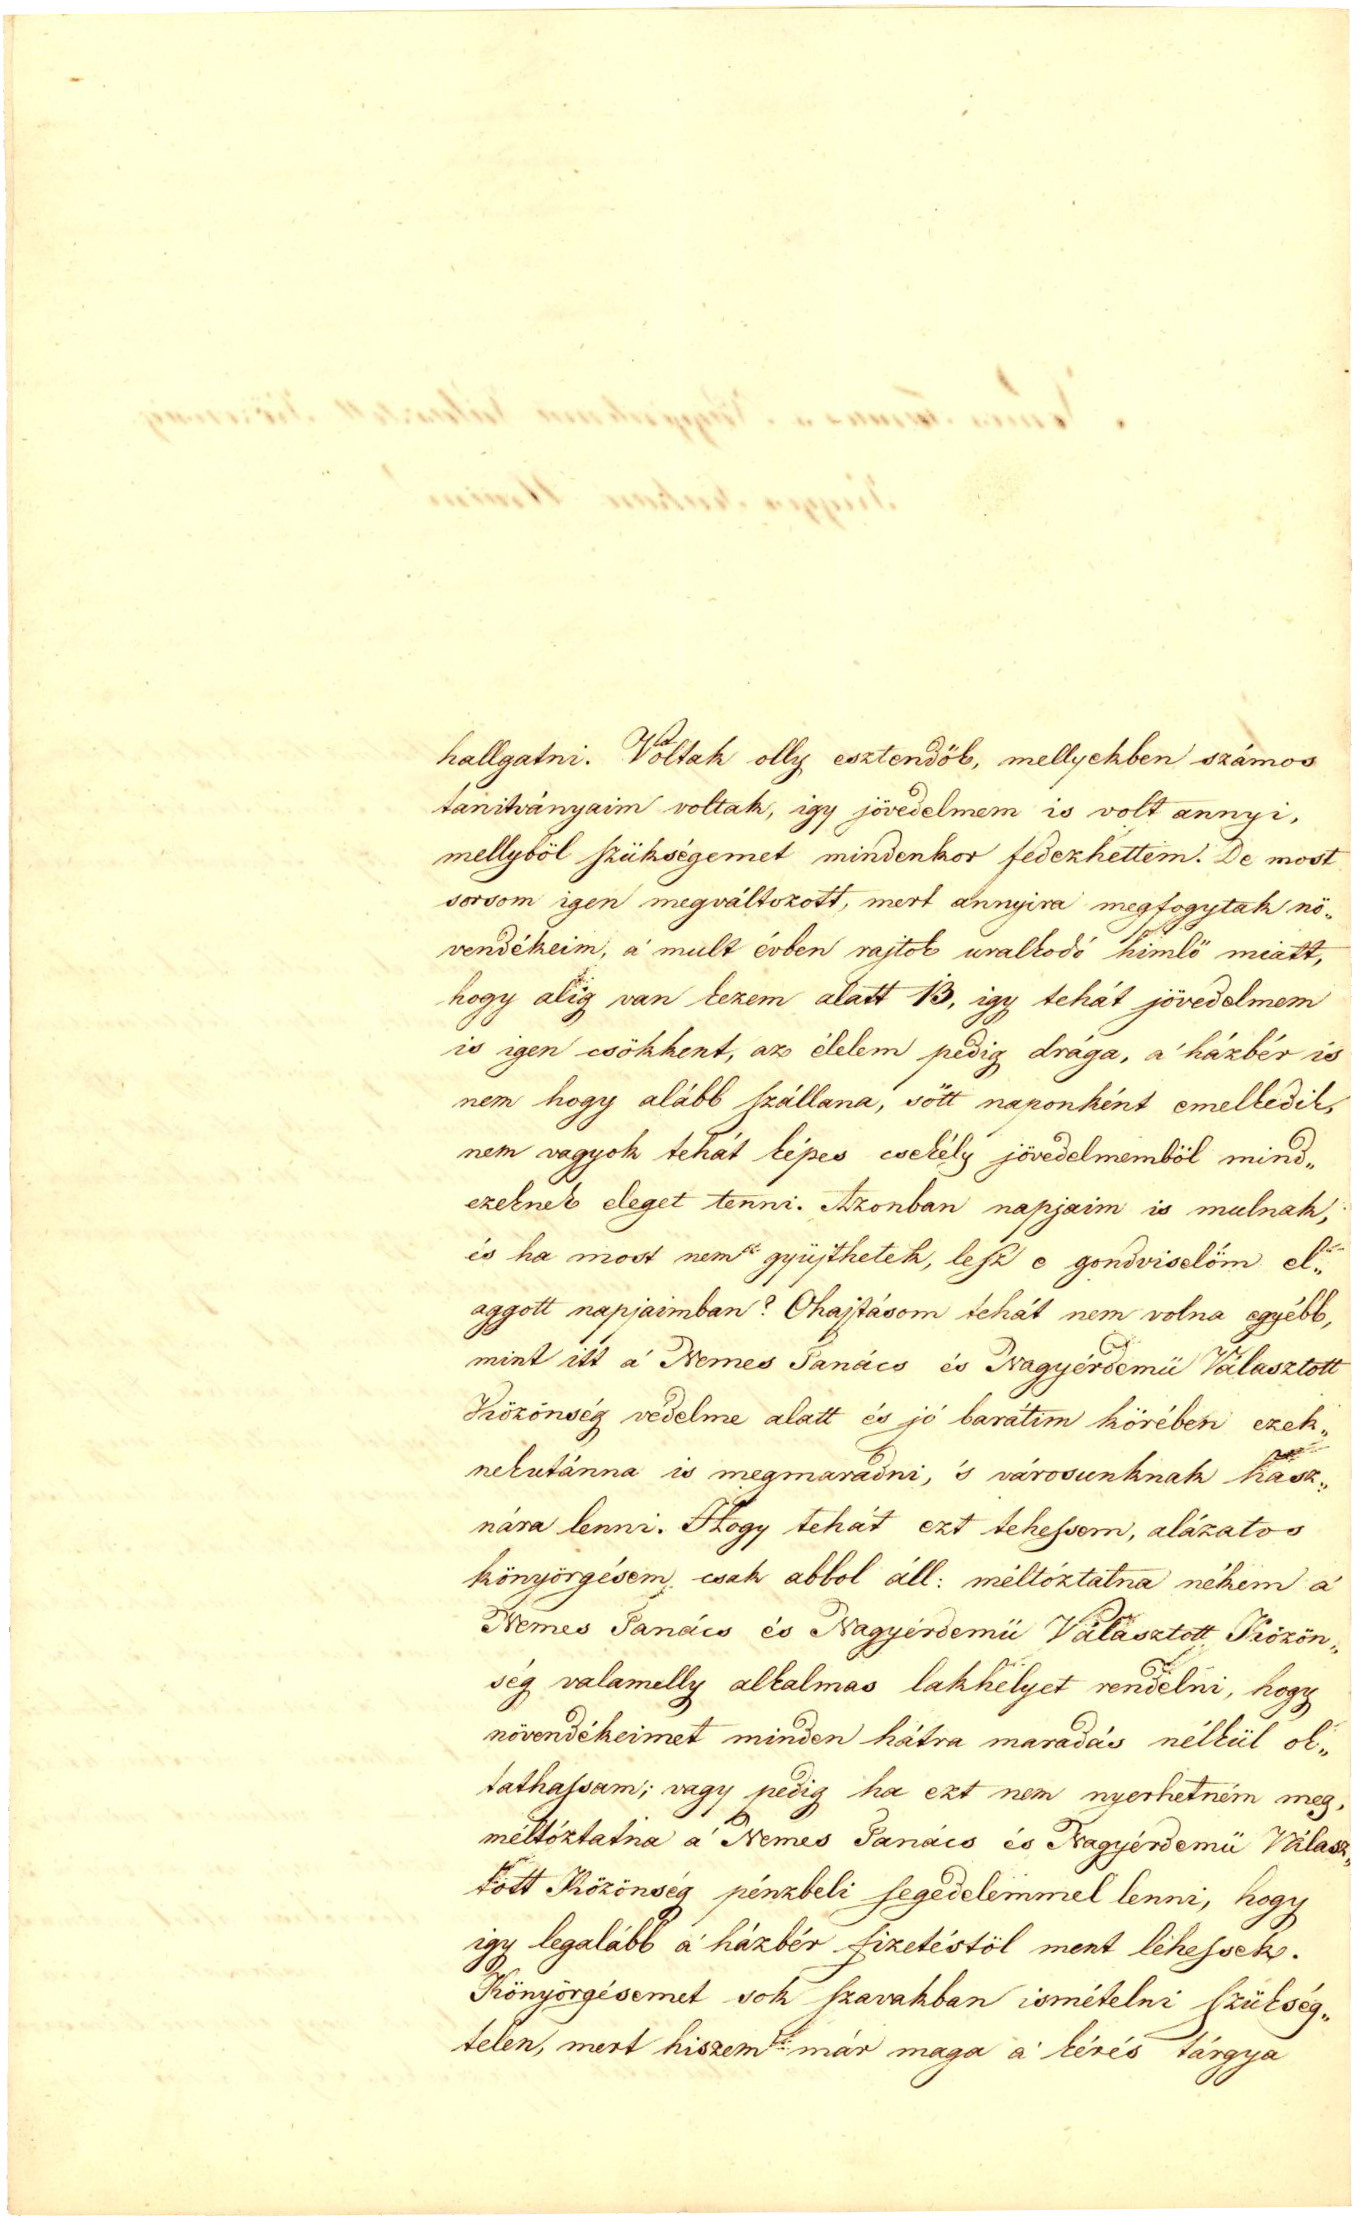 hallgatni. Voltak olly esztendők, mellyekben számos
tanitványaim voltak, igy jövedelmem is volt annyi,
mellyböl szükségemet mindenkor fedezhettem. De most
sorsom igen megváltozott, mert annyira megfogytak nö„
vendékeim, a' mult évben rajtok uralkodó himlö miatt,
hogy alig van kezem alatt 13, igy tehát jövedelmem
is igen csökkent, az élelem pedig drága, a' házbér is
nem hogy alább szállana, sött naponként emelkedik,
nem vagyok tehát képes csekély jövedelmemböl mind„
ezeknek eleget tenni. Azonban napjaim is mulnak,
és ha most nem gyüjthetek, lesz e gondviselöm el„
aggott napjaimban? Ohajtásom tehát nem volna egyébb,
mint itt a' Nemes Tanács és Nagyérdemü Választott
Közönség vedelme alatt és jó barátim körében ezek„
nekutánna is megmaradni, 's városunknak hasz„
nára lenni. Hogy tehát ezt tehessem, alázatos
könyörgésem csak abbol áll: méltóztatna nékem a'
Nemes Tanács és Nagyérdemü Választott Közön„
ség valamelly alkalmas lakhelyet rendelni, hogy
növendékeimet minden hátra maradás nélkül ok„
tathassam; vagy pedig ha ezt nem nyerhetném meg,
méltóztatna a' Nemes Tanács és Nagyérdemü Válasz„
tott Közönség pénzbeli segedelemmel lenni, hogy
igy legalább a' házbér fizetéstöl ment lehessek.
Könyörgésemet sok szavakban ismételni szükség„
telen, mert hiszem már maga a' kérés tárgya